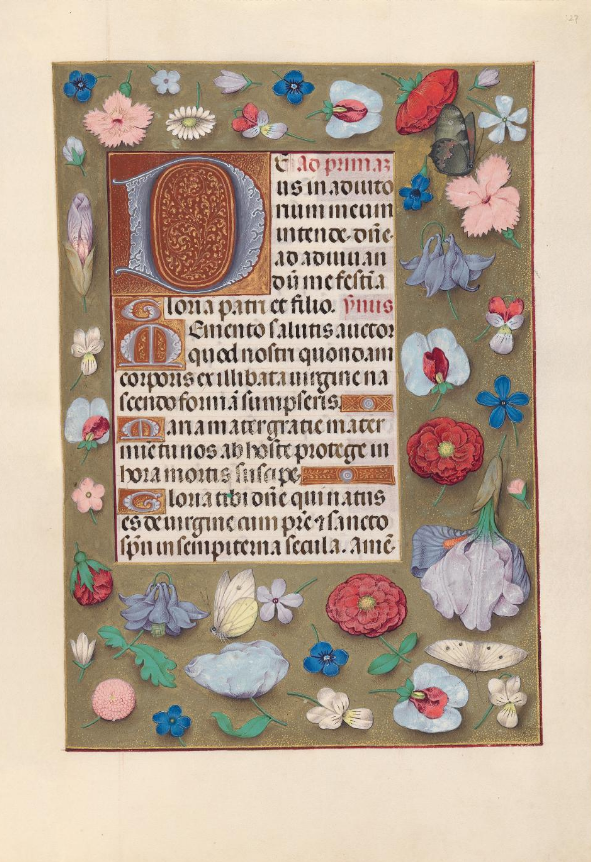 27
DE Ad primaz
us in adiuto
rium meum
intende. dn̄e
ad adiuuan
dū me festīa
Gloria patri et filio. ymus
Memento salutis auctor
quod nostri quondam
corporis ex illibata uirgine na
scendo formā sumpseris.
Maria mater gratie mater
mie tu nos ab hoste protege in
hora mortis suscipe.
Gloria tibi dn̄e qui natus
es de uirgine cum pr̄e ⁊ sancto
sp̄u in sempiterna secula. Amē